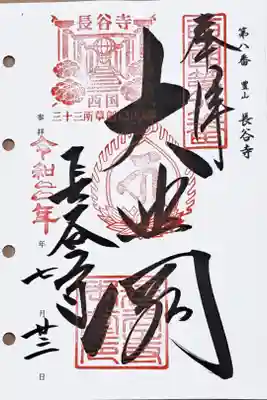 第八番 豊山 長谷寺
奉拝
大悲閣
長谷寺
長谷寺
西国
三十三所草創
参拝
令和二年
年 七 月 廿三 日